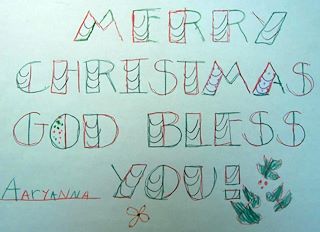 MERRY
CHRISTMAS
GOD BLESS
YOU!
AARYANNA